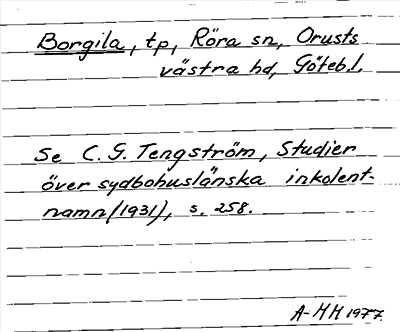 Borgila, tp, Röra sn, Orusts
västra hd, Göteb. l.
Se C. G. Tengström, Studier
över sydbohuslänska inkolent-
namn (1931), s. 258.
A-MM 1977.